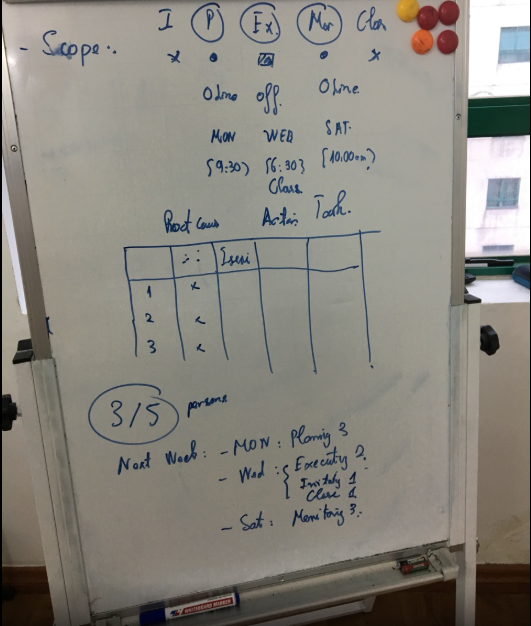 I P Ex. Mon Clos
- Scope:.
Online off. Online.
MON WEB SAT.
(9:30) (6:30) (10:00am)
Class
Root caus Action Task.
1 x
2 x
3 x
3/5 persons
Next Week: - MON: Planing 3
- Wed: { Executy 2.
Initaty 1
Close 1
- Sat: Monitoring 3.
WHITEBOARD MARKER